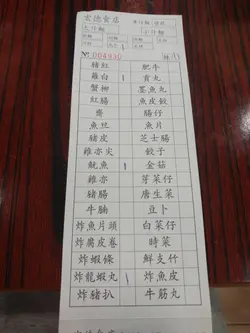 宏德食店
№ 004930
豬紅 肥牛
蘿白 1 貢丸
蟹柳 墨魚丸
紅腸 魚皮餃
齋 腸仔
魚旦 魚片
豬皮 芝士腸
雞亦尖 餃子
魷魚 1 金菇
雞亦 芽菜仔
豬腸 唐生菜
牛腩 豆卜
炸魚片頭 白菜仔
炸腐皮卷 時菜
炸蝦條 鮮支竹
炸龍蝦丸 1 炸魚皮
炸豬扒 牛筋丸